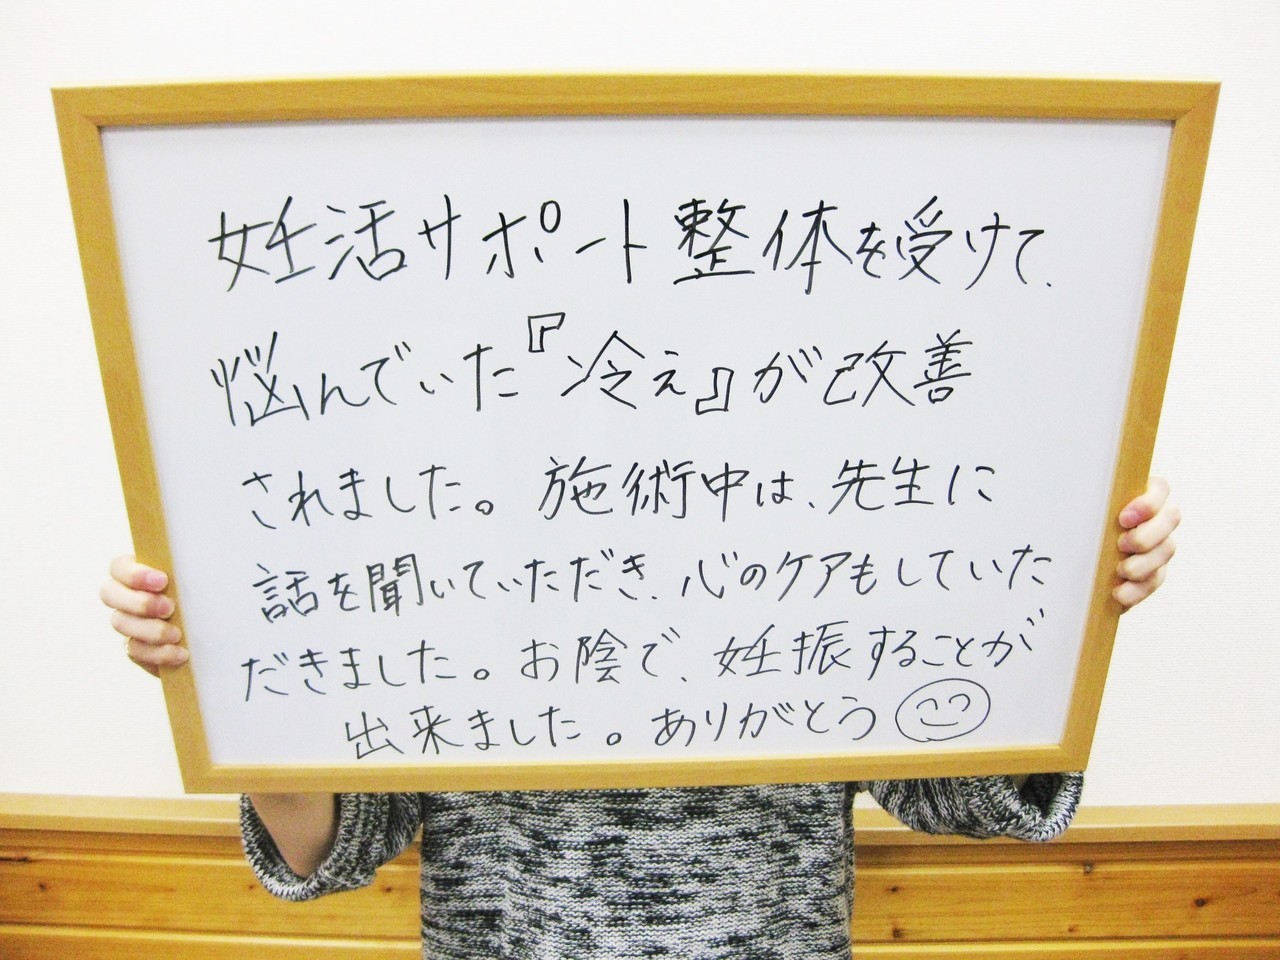 妊活サポート整体を受けて、
悩んでいた『冷え』が改善
されました。施術中は、先生に
話を聞いていただき、心のケアもしていた
だきました。お陰で、妊振することが
出来ました。ありがとう